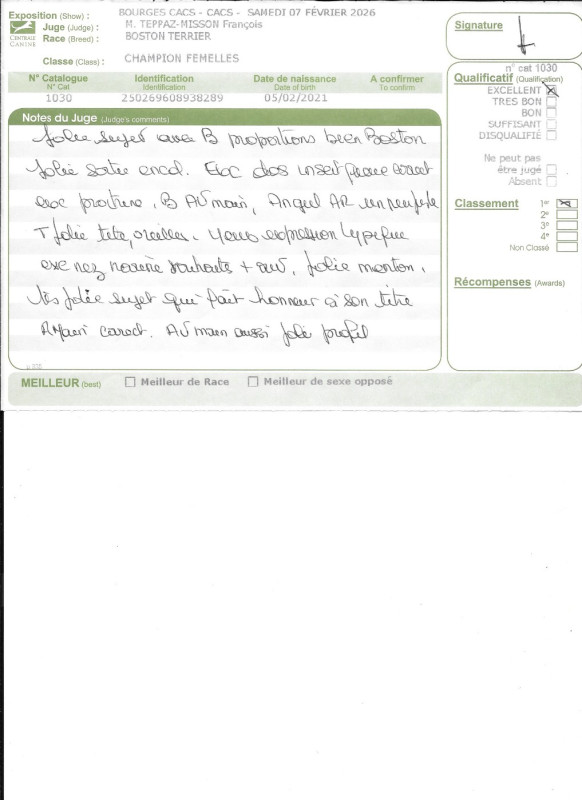 Exposition (Show) : BOURGES CACS - CACS - SAMEDI 07 FÉVRIER 2026
Juge (Judge) : M. TEPPAZ-MISSON François
Race (Breed) : BOSTON TERRIER
CENTRALE CANINE
Classe (Class) : CHAMPION FEMELLES
N° Catalogue Identification Date de naissance A confirmer
N° Cat Identification Date of birth To confirm
1030 250269608938289 05/02/2021
Notes du Juge (Judge's comments)
Jolie sujet avec B proportions bien Boston
Jolie sortie encol. Exc dos correct
exc poitrine, B AV main, Angul AR un
T Jolie tête, oreilles. Yeux expression typique
exc nez souhaits + ouv, Jolie menton.
très jolie sujet qui fait honneur à son titre
caract. AV main aussi joli profil
MEILLEUR (best) Meilleur de Race Meilleur de sexe opposé
Signature
n° cat 1030
Qualificatif (Qualification)
EXCELLENT
TRES BON
BON
SUFFISANT
DISQUALIFIÉ
Ne peut pas
être jugé
Absent
Classement 1er
2e
3e
4e
Non Classé
Récompenses (Awards)